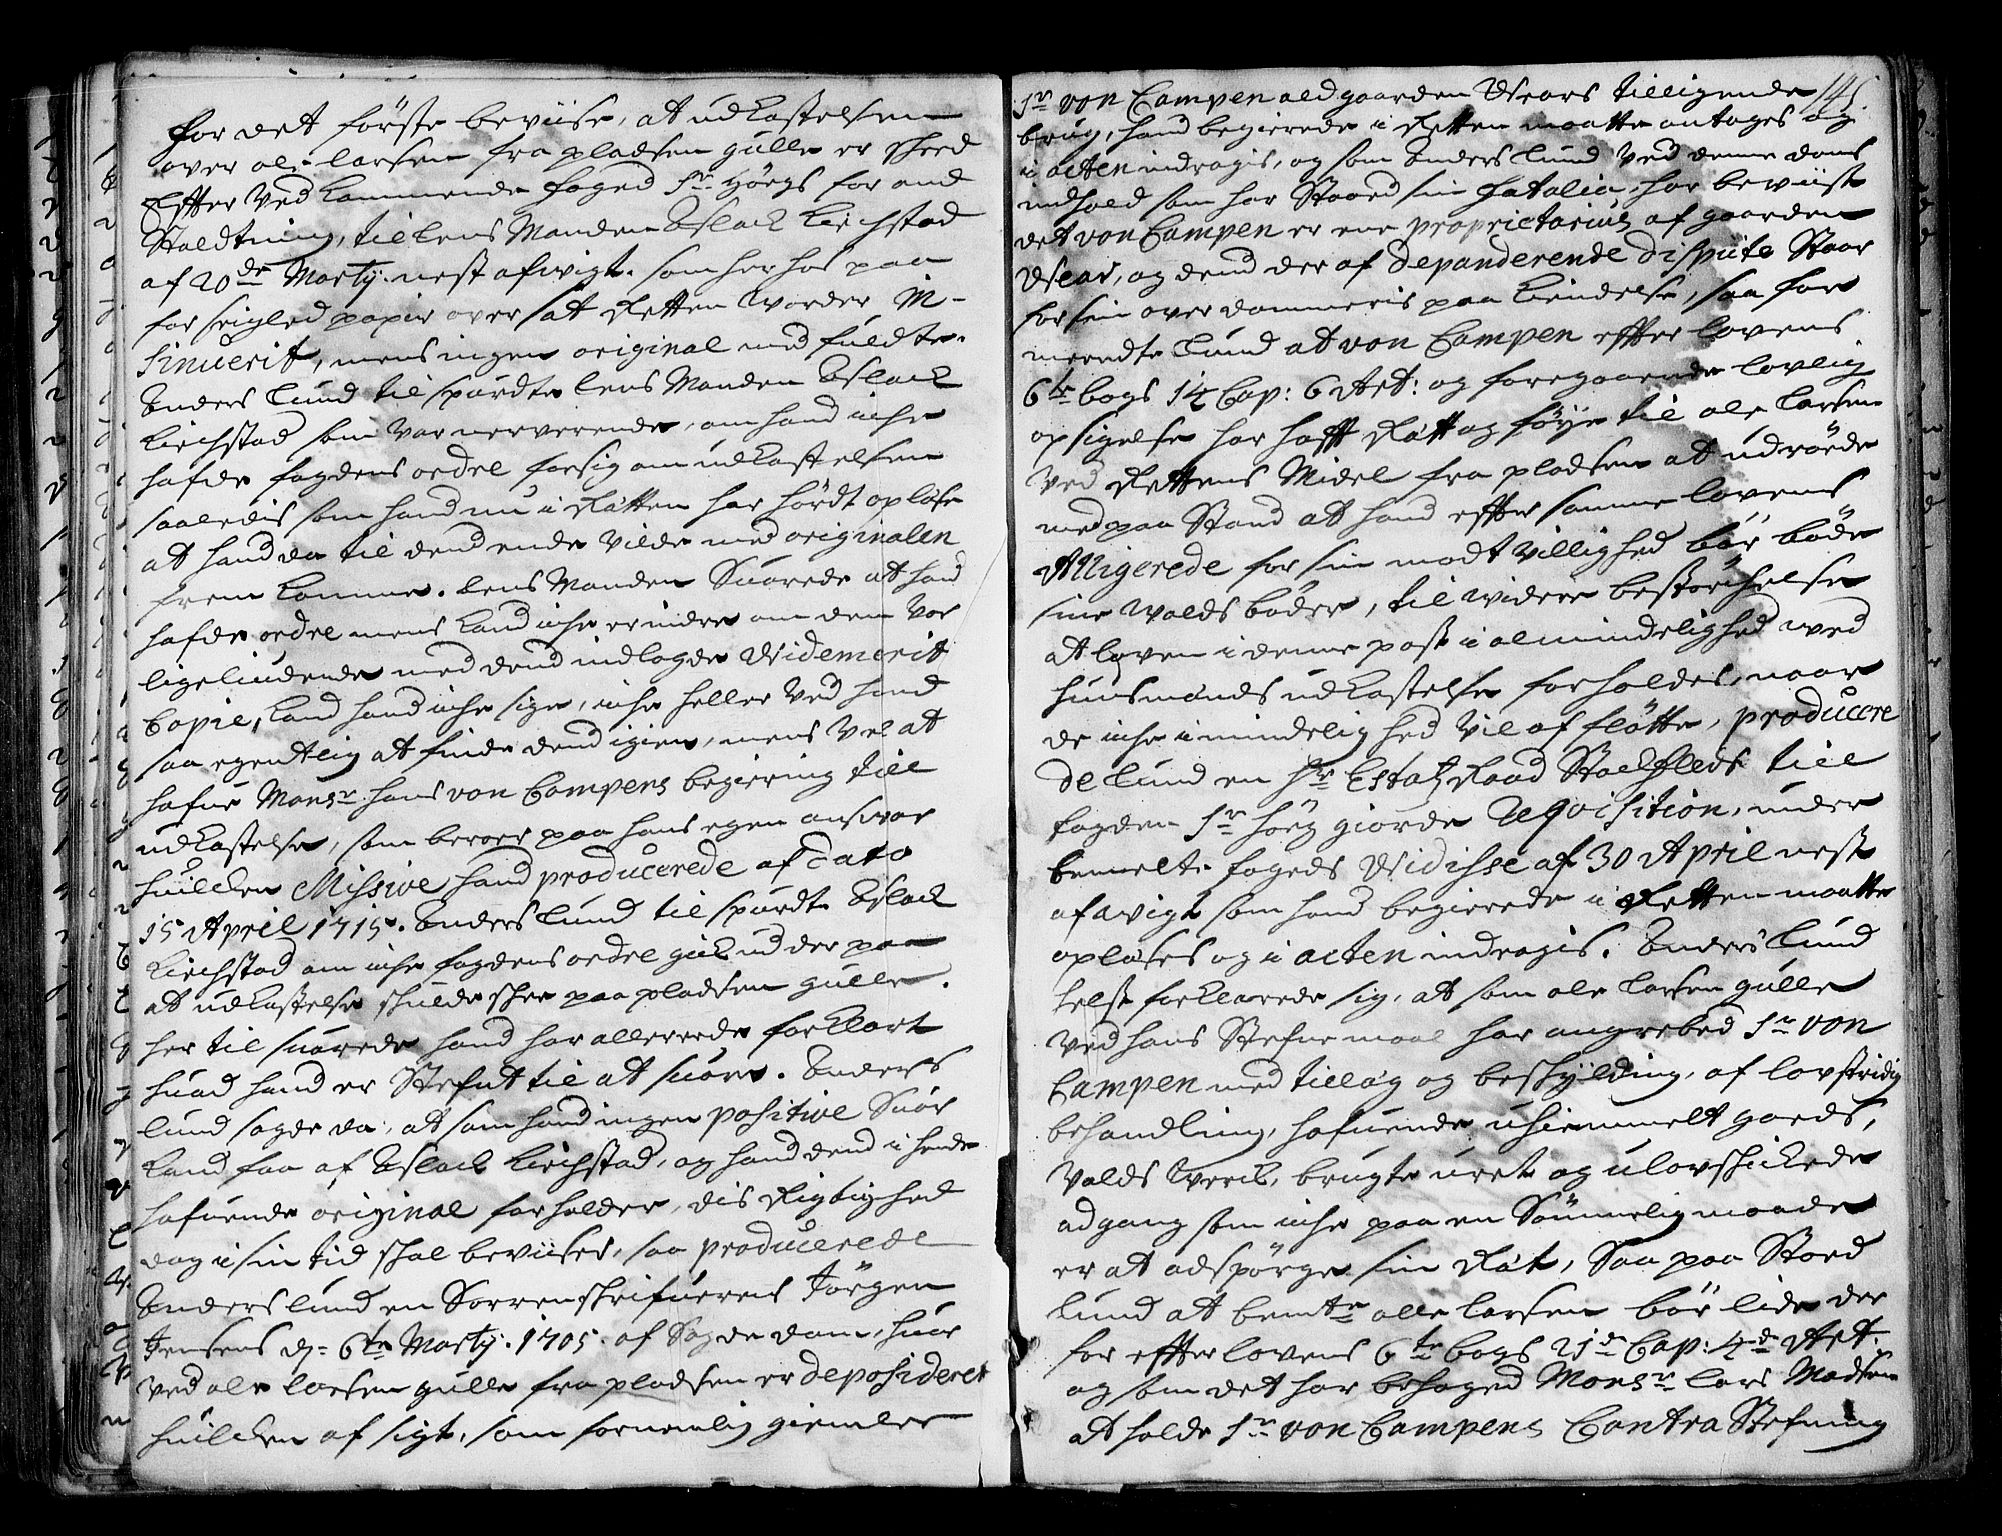 for det første beviise, at udkastelsen
over ole larsen fra pladsen gulle er skeed
Efter Ved kommende foged Sr Høegs for and
staldtning, til lens Manden Aslach Kirchstad
af 20de Marty nest afvigt. som her hos paa
forseigled papir over sat Retten worder In-
sinuerit, mens ingen original med fuldte.
Anders Lund til spurdte lens Manden Aslach
Kirchstad som var nerverende, om hand iche
hafde fogdens ordre for sig om udkastelsen
saaledis som hand nu i Rætten har hørdt oplæse
at hand da til dend ende vilde med originalen
frem komme. lens Manden Suarede at hand
hafde ordre mens kand iche erindre om dem var
ligeliudende med dend indlagde Widemerit
Copie, kand hand iche sige, iche heller ved hand
saa egentlig at finde dend igien, mens vel at
hafue Monsr hans von Campens begiering till
udkastelse, som beroer paa hans egen ansvar
huilcken Missive hand producerede af Dato
15 April 1715. Anders Lund til spurdte Aslach
Kirchstad om iche fogdens ordre gik ud der paa
at udkastelse skulde skee paa pladsen gulle.
her til suarede hand har allerede forklart
huad hand er Stefnt til at suare. Anders
Lund sagde da, at som hand ingen positive Suar
kand faa af Aslach Kirchstad, og hand dend i hende
hafuende original forholder, dis Rigtighed
dog i sin tid skal beviises, saa producerede
Anders Lund en Sorrenskrifuerens Jørgen
Jensens d: 6te Marty. 1705. af Sagde dom, huor
ved ole larsen gulle fra pladsen er deposideret
huilcken af sigt, som fornemlig giemler
145.
Sr von Campen ald gaarden Wears tilligende
brug, hand begierede i Retten maatte antages og
i acten indragis, og som Anders Lund ved denne doms
indhold som har Staaed sin fatalia, har beviist
det von Campen er ene proprietarius af gaarden
Wear, og dend der af depanderende dispute Staar
for sin over dommeris paa kiendelse, saa for
meendte Lund at von Campen effter lovens
6te bogs 14 Cap: 6 Art: og foregaaende lovlig
opsigelse har hafft Ræt og føye til ole larsen
ved Rettens Midel fra pladsen at udrøde
med paa Stand at hand effter samme lovens
Alligerede for sin modtvillighed bør bøde
sine Wolds bøder, til videre bestørchelse
at loven i denne post i almindelighed ved
huusmænds udkastelse forholdes, naar
de iche i mindelighed vil af fløtte, producere
de Lund en Hr Estatz Raad Stochfleds till
fogden Sr Høeg giorde Reqvisition, under
bemelte fogeds Widisse af 30 April nest
afvigt som hand begierede i Retten maatte
oplæses og i acten indragis. Anders Lund
helst forklarede sig, at som ole larsen gulle
ved hans Stefnemaal har angrebed Sr von
Campen med tillæg og beskylding, af lovstridig
behandling, hafuende uhiemmelt gaards,
Volds Werck, brugte uret og ulovskickede
adgang som iche paa en Sømmelig maade
er at adspørge sin Ræt, Saa paa Stoed
Lund at bemte olle larsen bør lide der
for effter lovens 6te bogs 21de Cap: 4de Art:
og som det har behaged Monsr Lars Madsen
at holde Sr von Campens Contra Stefning